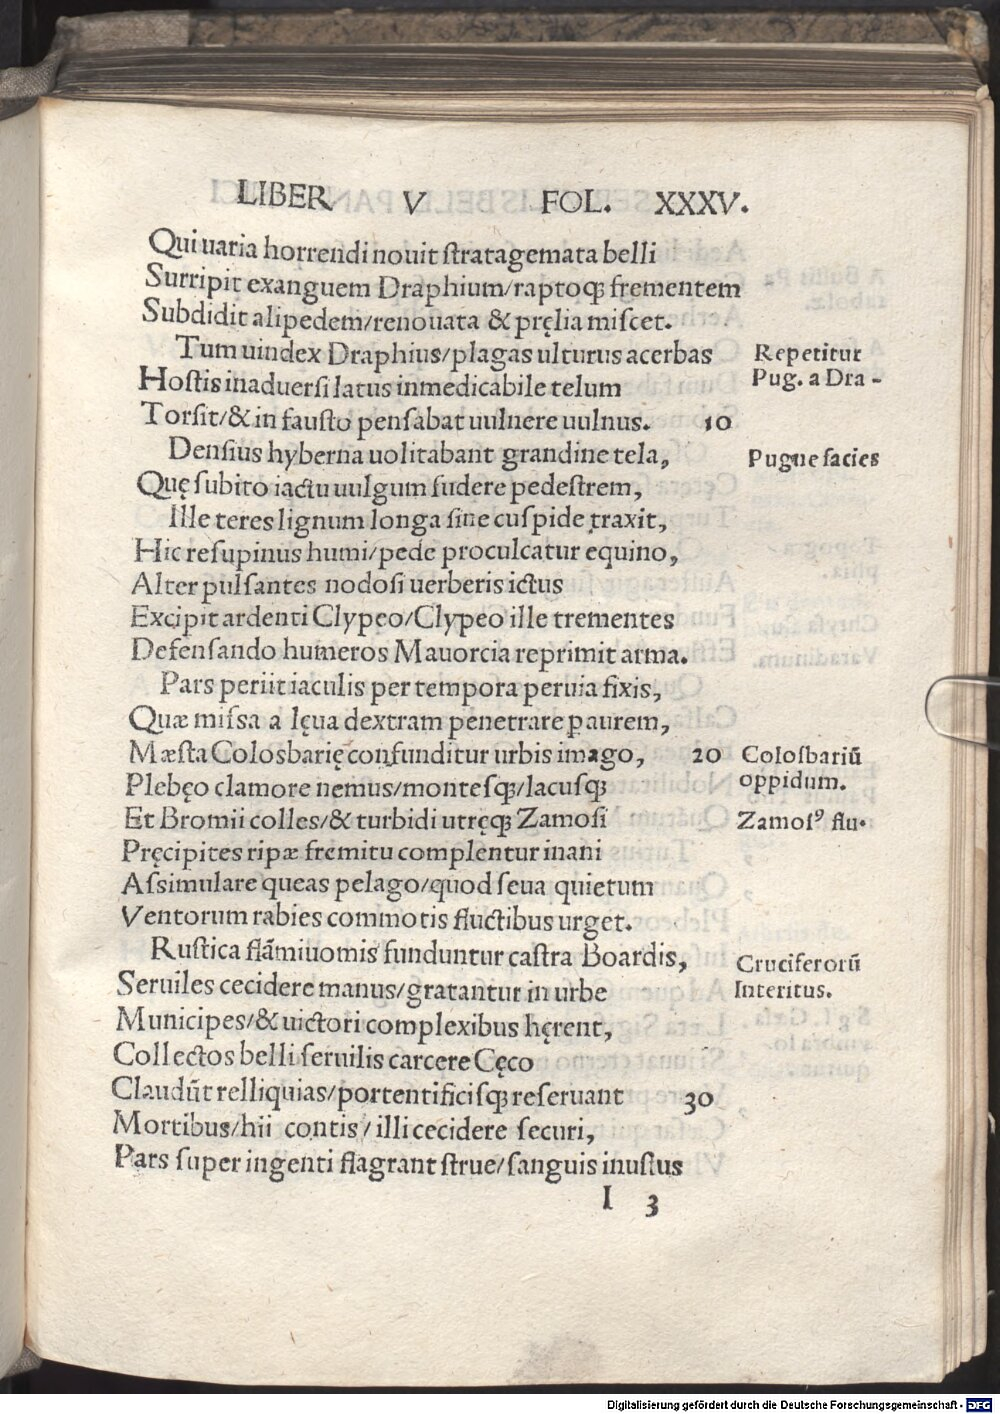 LIBER V FOL. XXXV.
Qui uaria horrendi nouit ſtratagemata belli
Surripit exanguem Draphium/raptoqꝫ frementem
Subdidit alipedem/renouata & pręlia miſcet.
Tum uindex Draphius/plagas ulturus acerbas
Repetitur
Hoſtis inaduerſi latus inmedicabile telum
Pug. a Dra-
Torſit/& in fauſto penſabat uulnere uulnus. 10
Denſius hyberna uolitabant grandine tela,
Pugne facies
Quę ſubito iactu uulgum fudere pedeſtrem,
Ille teres lignum longa ſine cuſpide traxit,
Hic reſupinus humi/pede proculcatur equino,
Alter pulſantes nodoſi uerberis ictus
Excipit ardenti Clypeo/Clypeo ille trementes
Defenſando humeros Mauorcia reprimit arma.
Pars periit iaculis per tempora peruia fixis,
Quæ miſſa a lęua dextram penetrare p aurem,
Mæſta Colosbarię confunditur urbis imago, 20
Coloſbariū
Plebęo clamore nemus/monteſqꝫ/lacuſqꝫ
oppidum.
Et Bromii colles/& turbidi utręqꝫ Zamoſi
Zamoſꝰ flu.
Pręcipites ripæ fremitu complentur inani
Aſsimulare queas pelago/quod ſeua quietum
Ventorum rabies commotis fluctibus urget.
Ruſtica flāmiuomis funduntur caſtra Boardis,
Cruciferorū
Seruiles cecidere manus/gratantur in urbe
Interitus.
Municipes/& uictori complexibus hęrent,
Collectos belli ſeruilis carcere Cęco
Claudūt relliquias/portentificiſqꝫ reſeruant 30
Mortibus/hii contis/illi cecidere ſecuri,
Pars ſuper ingenti flagrant ſtrue/ſanguis inuſtus
I 3
Digitalisierung gefördert durch die Deutsche Forschungsgemeinschaft - DFG